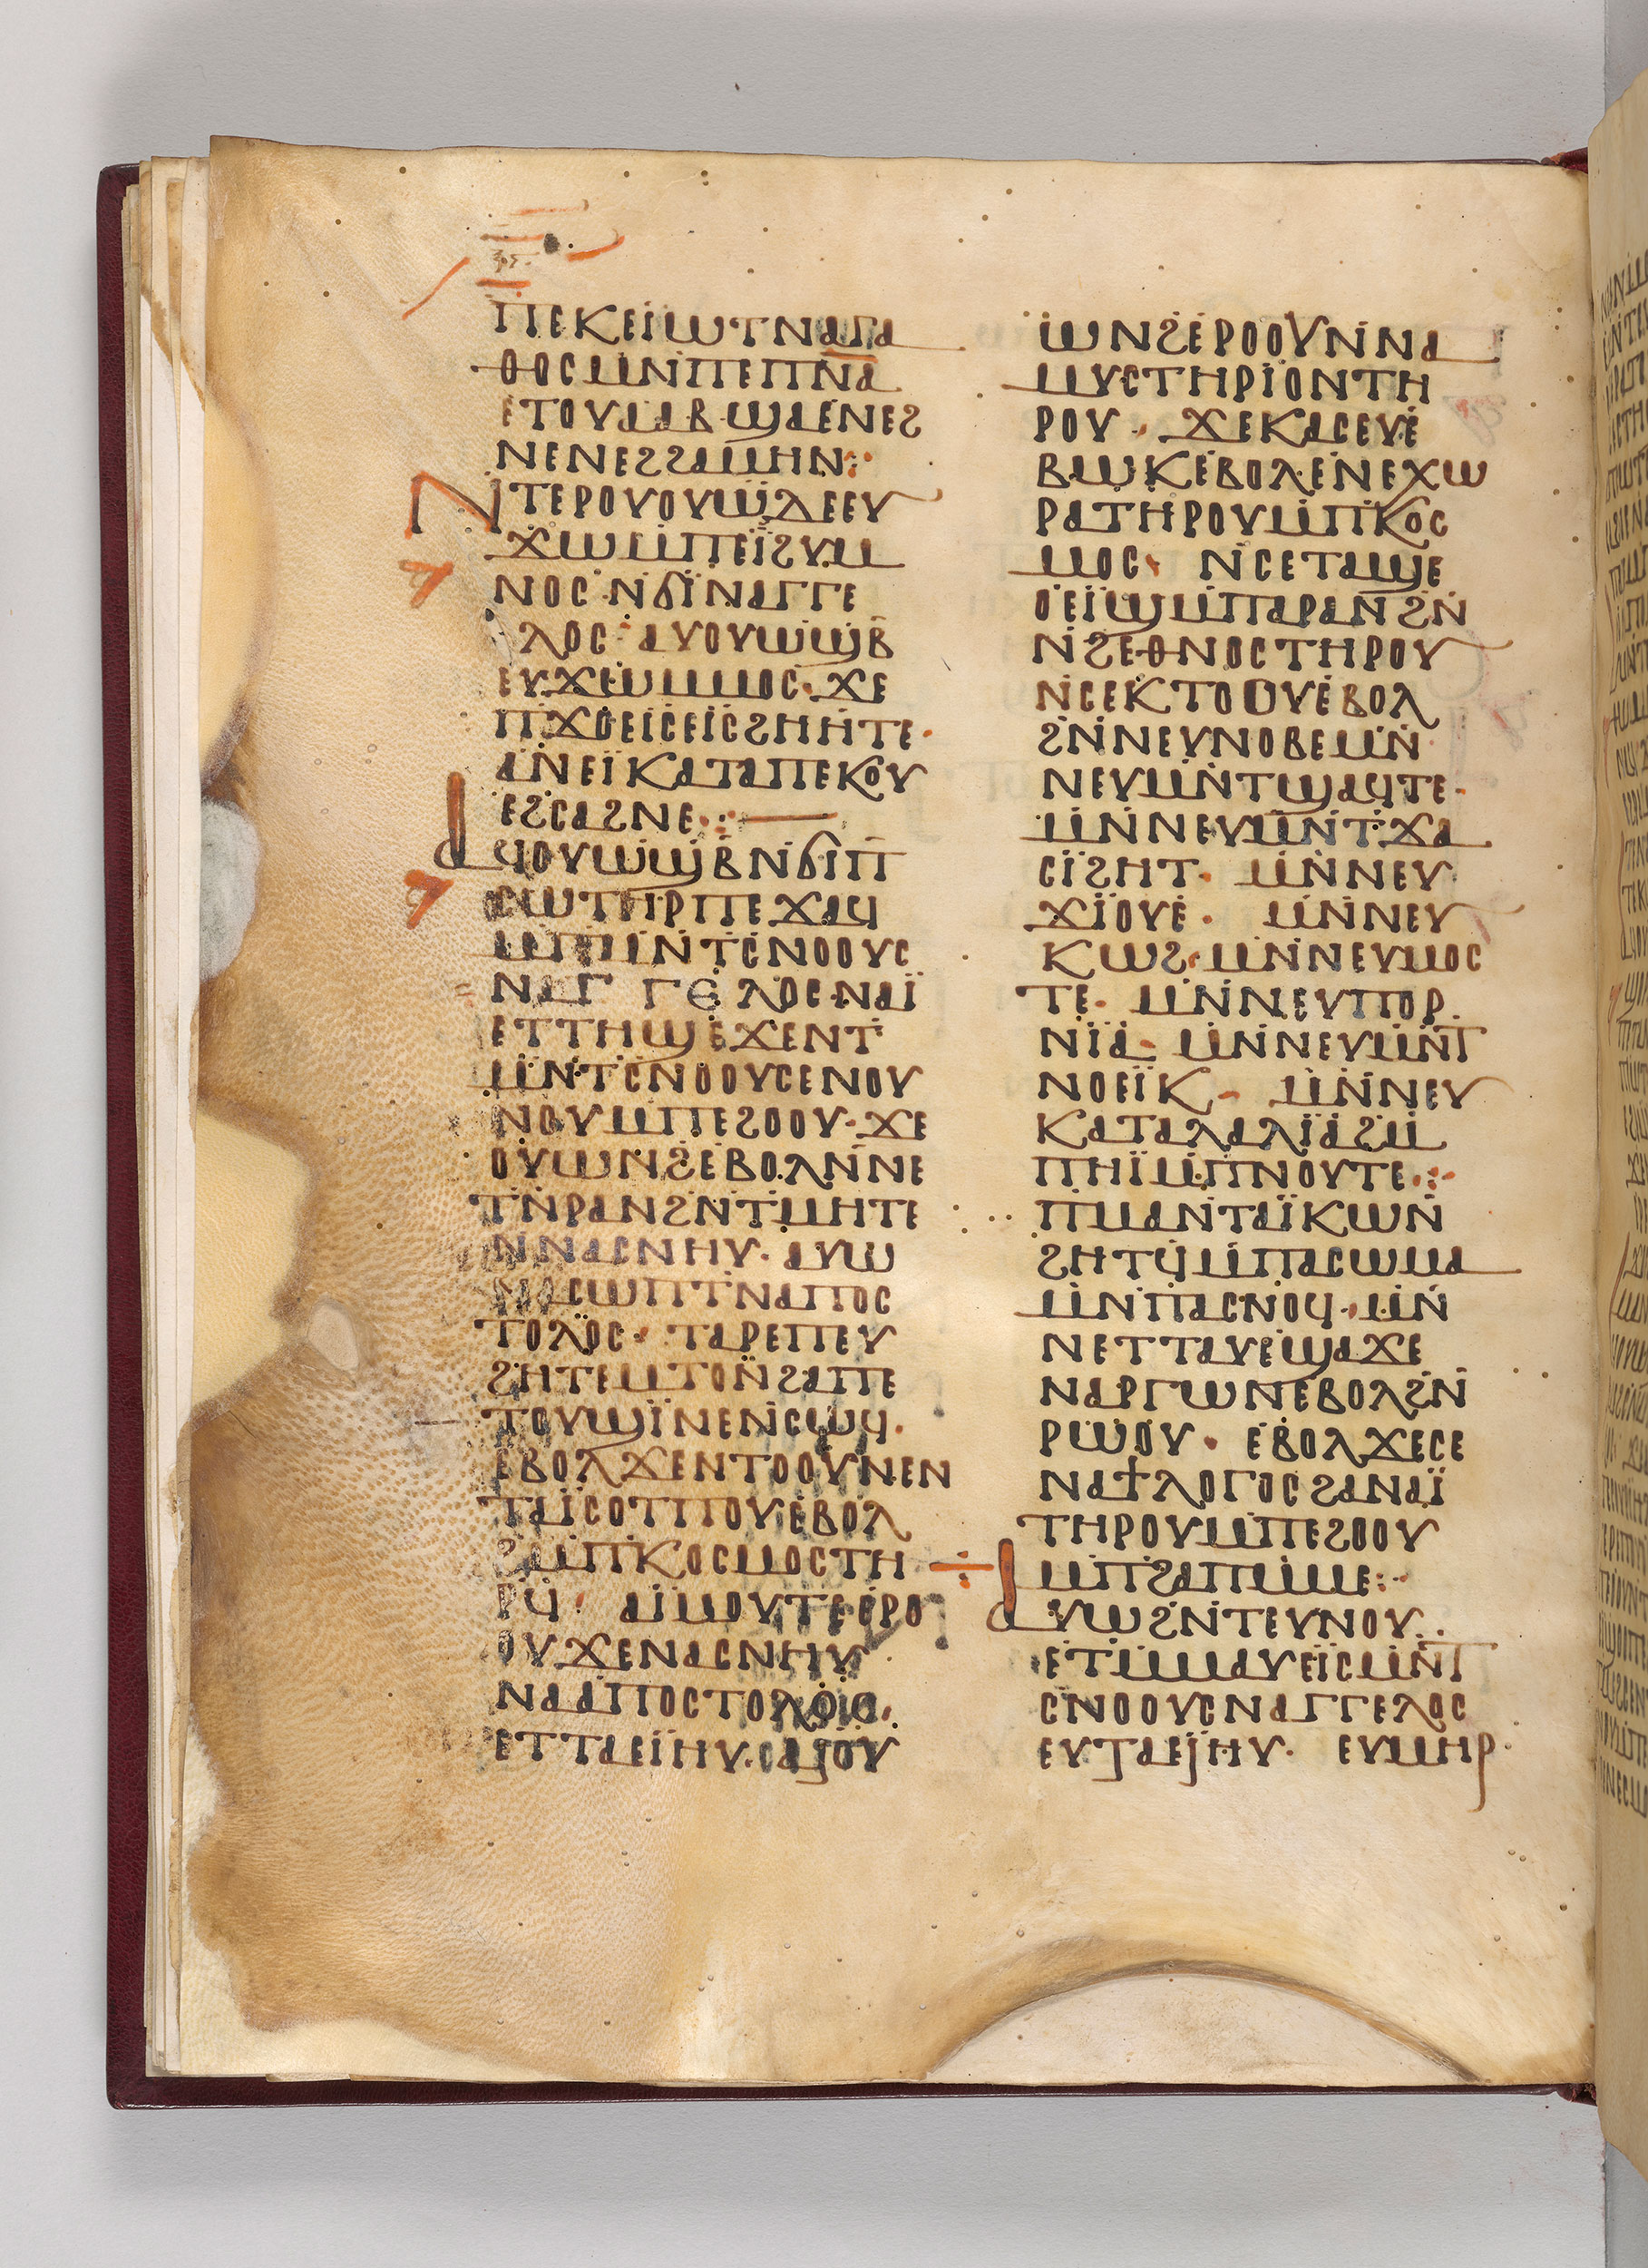 ⲡⲉⲕⲉⲓⲱⲧⲛⲁⲅⲁ
ⲑⲟⲥⲙⲛⲡⲉⲡⲛⲁ
ⲉⲧⲟⲩⲁⲁⲃ·ϣⲁⲉⲛⲉϩ
ⲛⲉⲛⲉϩϩⲁⲙⲏⲛ:·
ⲛⲧⲉⲣⲟⲩⲟⲩⲱϩⲇⲉⲉⲩ
ϫⲱⲙⲡⲉⲓϩⲩⲙ
ⲛⲟⲥⲛϭⲓⲛⲁⲅⲅⲉ
ⲗⲟⲥ·ⲁⲩⲟⲩⲱϣⲃ
ⲉⲩϫⲱⲙⲙⲟⲥ·ϫⲉ
ⲡϫⲟⲉⲓⲥⲉⲓⲥϩⲏⲏⲧⲉ·
ⲁⲛⲉⲓⲕⲁⲧⲁⲡⲉⲕⲟⲩ
ⲉϩⲥⲁϩⲛⲉ·:—
ⲁϥⲟⲩⲱϣⲃⲛϭⲓⲡ
ⲥⲱⲧⲏⲣⲡⲉϫⲁϥ
ⲙⲡⲙⲛⲧⲥⲛⲟⲟⲩⲥ
ⲛⲁⲅⲅⲉⲗⲟⲥ·ⲛⲁⲓ
ⲉⲧⲧⲏϣⲉϫⲉⲛⲧ
ⲙⲛⲧⲥⲛⲟⲟⲩⲥⲉⲛⲟⲩ
ⲛⲟⲩⲙⲡⲉϩⲟⲟⲩ·ϫⲉ
ⲟⲩⲱⲛϩⲉⲃⲟⲗⲛⲛⲉ
ⲧⲛⲣⲁⲛϩⲛⲧⲙⲏⲧⲉ
ⲛⲛⲁⲥⲛⲏⲩ·ⲁⲩⲱ
ⲛⲁⲥⲱⲡⲧⲛⲁⲡⲟⲥ
ⲧⲟⲗⲟⲥ·ⲧⲁⲣⲉⲡⲉⲩ
ϩⲏⲧⲉⲙⲧⲟⲛϩⲁⲡⲉ
ⲧⲟⲩϣⲓⲛⲉⲛⲥⲱϥ·
ⲉⲃⲟⲗϫⲉⲛⲧⲟⲟⲩⲛⲉⲛ
ⲧⲁⲓⲥⲟⲧⲡⲟⲩⲉⲃⲟⲗ
ϩⲙⲡⲕⲟⲥⲙⲟⲥⲧⲏ
ⲣϥ·ⲁⲓⲙⲟⲩⲧⲉⲉⲣⲟ
ⲟⲩϫⲉⲛⲁⲥⲛⲏⲩ
ⲛⲁⲁⲡⲟⲥⲧⲟⲗⲟⲥ·
ⲉⲧⲧⲁⲉⲓⲏⲩ·
ⲱⲛϩⲉⲣⲟⲟⲩⲛⲛⲁ
ⲙⲩⲥⲧⲏⲣⲓⲟⲛⲧⲏ
ⲣⲟⲩ·ϫⲉⲕⲁⲥⲉⲩⲉ
ⲃⲱⲕⲉⲃⲟⲗⲉⲛⲉⲭⲱ
ⲣⲁⲧⲏⲣⲟⲩⲙⲡⲕⲟⲥ
ⲙⲟⲥ·ⲛⲥⲉⲧⲁϣⲉ
ⲟⲉⲓϣⲙⲡⲁⲣⲁⲛϩⲛ
ⲛϩⲉⲑⲛⲟⲥⲧⲏⲣⲟⲩ
ⲛⲥⲉⲕⲧⲟⲟⲩⲉⲃⲟⲗ
ϩⲛⲛⲉⲩⲛⲟⲃⲉⲙⲛ
ⲛⲉⲩⲙⲛⲧϣⲁϥⲧⲉ·
ⲙⲛⲛⲉⲩⲙⲛⲧϫⲁ
ⲥⲓϩⲏⲧ·ⲙⲛⲛⲉⲩ
ϫⲓⲟⲩⲉ·ⲙⲛⲛⲉⲩ
ⲕⲱϩ·ⲙⲛⲛⲉⲩⲙⲟⲥ
ⲧⲉ·ⲙⲛⲛⲉⲩⲡⲟⲣ
ⲛⲓⲁ·ⲙⲛⲛⲉⲩⲙⲛⲧ
ⲛⲟⲉⲓⲕ·ⲙⲛⲛⲉⲩ
ⲕⲁⲧⲁⲗⲁⲗⲓⲁϩⲙ
ⲡⲏⲓⲙⲡⲛⲟⲩⲧⲉ·:·
ⲡⲙⲁⲛⲧⲁⲓⲕⲱⲛ
ϩⲏⲧϥⲙⲡⲁⲥⲱⲙⲁ
ⲙⲛⲡⲁⲥⲛⲟϥ·ⲙⲛ
ⲛⲉⲧⲧⲁⲩⲉϣⲁϫⲉ
ⲛⲁⲣⲅⲱⲛⲉⲃⲟⲗϩⲛ
ⲣⲱⲟⲩ·ⲉⲃⲟⲗϫⲉⲥⲉ
ⲛⲁϯⲗⲟⲅⲟⲥϩⲁⲛⲁⲓ
ⲧⲏⲣⲟⲩⲙⲡⲉϩⲟⲟⲩ
ⲙⲡϩⲁⲡⲙⲙⲉ:·
ⲁⲩⲱϩⲛⲧⲉⲩⲛⲟⲩ
ⲉⲧⲙⲙⲁⲩⲉⲓⲥⲙⲛⲧ
ⲥⲛⲟⲟⲩⲥⲛⲁⲅⲅⲉⲗⲟⲥ
ⲉⲩⲧⲁⲉⲓⲏⲩ·ⲉⲩⲙⲏⲣ